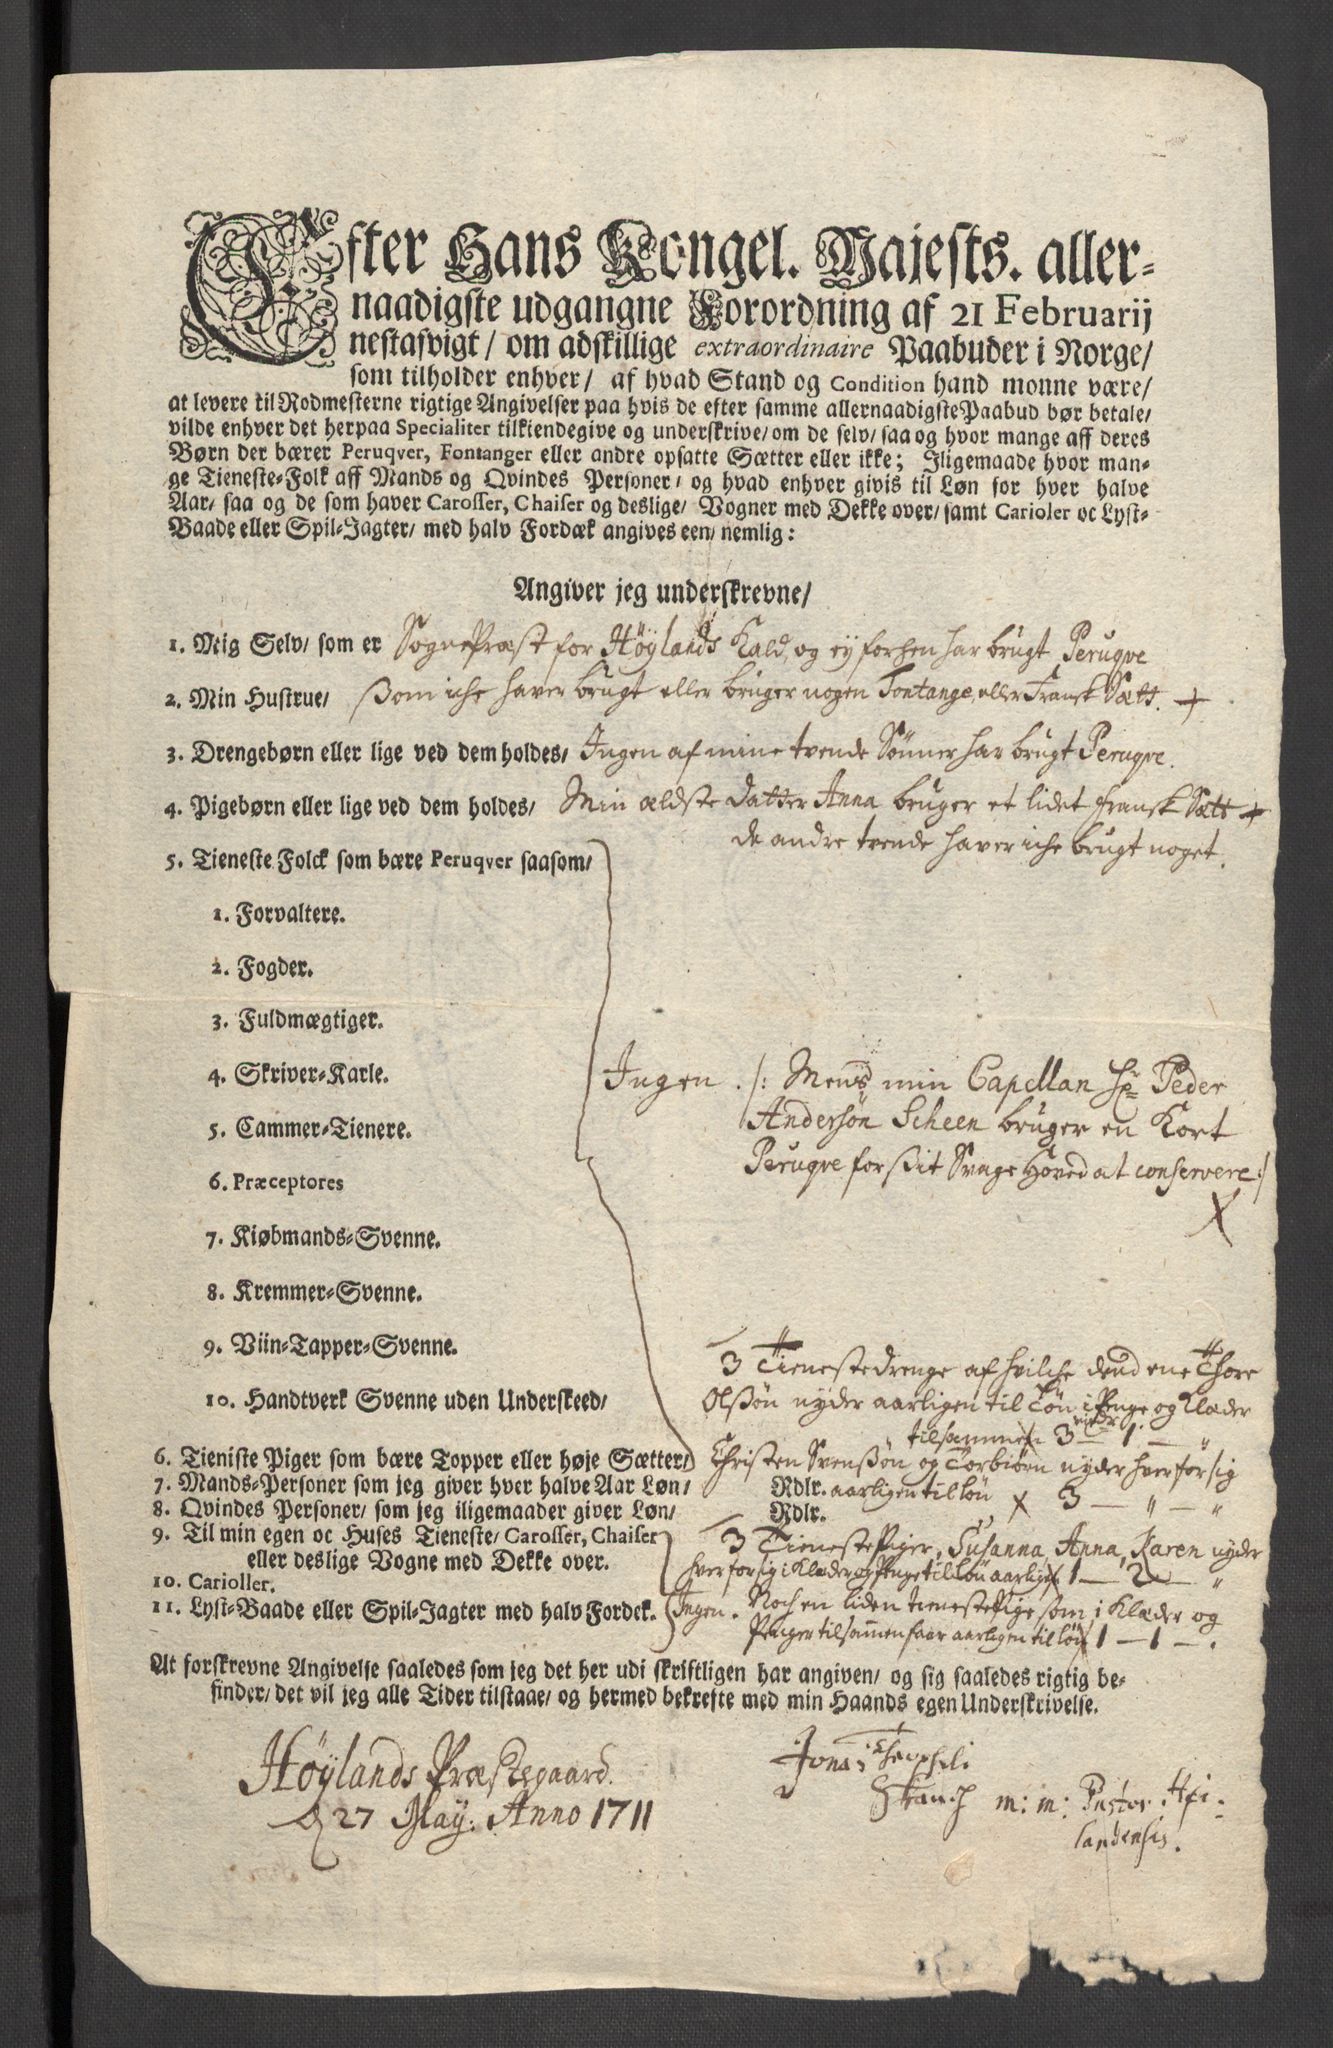 Efter Hans Kongel. Majests. aller-
naadigste udgangne Forordning af 21 Februarij
nestafvigt/ om adskillige extraordinaire Paabuder i Norge/
som tilholder enhver/ af hvad Stand og Condition hand monne være/
at levere til Rodmesterne rigtige Angivelser paa hvis de efter samme allernaadigste Paabud bør betale/
vilde enhver det herpaa Specialiter tilkiendegive og underskrive/ om de selv/ saa og hvor mange aff deres
Børn der bærer Peruqver, Fontanger eller andre opsatte Sætter eller ikke; Iligemaade hvor man-
ge Tieneste-Folk aff Mands og Qvindes Personer/ og hvad enhver givis til Løn for hver halve
Aar/ saa og de som haver Carosser, Chaiser og deslige/ Vogner med Dekke over/ samt Carioler oc Lyst-
Baade eller Spil-Jagter/ med halv Fordæk angives een/ nemlig:
Angiver jeg underskrevne/
1. Mig Selv/ som er SognePræst for Höylands Kald, og ey forhen har brugt Peruqve
2. Min Hustrue/ ßom iche haver brugt eller bruger nogen Fontange, eller Fransk Sætt. +
3. Drengebørn eller lige ved dem holdes/ Ingen af mine tvende Sönner har brugt Peruqve.
4. Pigebørn eller lige ved dem holdes/ Min ældste datter Anna bruger et lidet fransk Sætt +
de andre tvende haver iche brugt noget.
5. Tieneste Folck som bære Peruqver saasom/
1. Forvaltere.
2. Fogder.
3. Fuldmægtiger.
4. Skriver-Karle.
Ingen. /: Mens min Capellan Hr Peder
5. Cammer-Tienere.
Andersön Scheen bruger en Kort
6. Præceptores
Peruqve for ßit Svage Hoved at conservere :/
X
7. Kiøbmands-Svenne.
8. Kremmer-Svenne.
9. Viin-Tapper-Svenne.
3 Tienestedrenge af hvilche dend ene Thore
10. Handtverk Svenne uden Underskeed/
Olßön nyder aarligen til Lön i Penge og Klæder
tilsammen 3 — 1 — "
6. Tieniste Piger som bære Topper eller høje Sætter/
Christen Svenßön og Torbiörn nyder hver for sig
7. Mands-Personer som jeg giver hver halve Aar Løn/ Rdlr. aarligen til lön X 3 — " — "
8. Qvindes Personer/ som jeg iligemaader giver Løn/ Rdlr.
9. Til min egen oc Huses Tieneste/ Carosser, Chaiser
3 TienestePiger, Susanna, Anna, Karen nyder
eller deslige Vogne med Dekke over.
hver for sig i Klæder og Penge til lön aarligen 1 — 2 — "
10. Carioller.
11. Lyst-Baade eller Spil-Jagter med halv Fordek. Ingen. Noch en liden tienestePige som i Klæder og
Penger tilsammen faar aarligen til lön 1 — 1 — .
At forskrevne Angivelse saaledes som jeg det her udi skriftligen har angiven/ og sig saaledes rigtig be-
finder/ det vil jeg alle Tider tilstaae/ og hermed bekrefte med min Haands egen Underskrivelse.
Höylands Præstegaard.
d 27 May. Anno 1711
Jonas Theophili
Skanch m: m: Pastor
landensis.